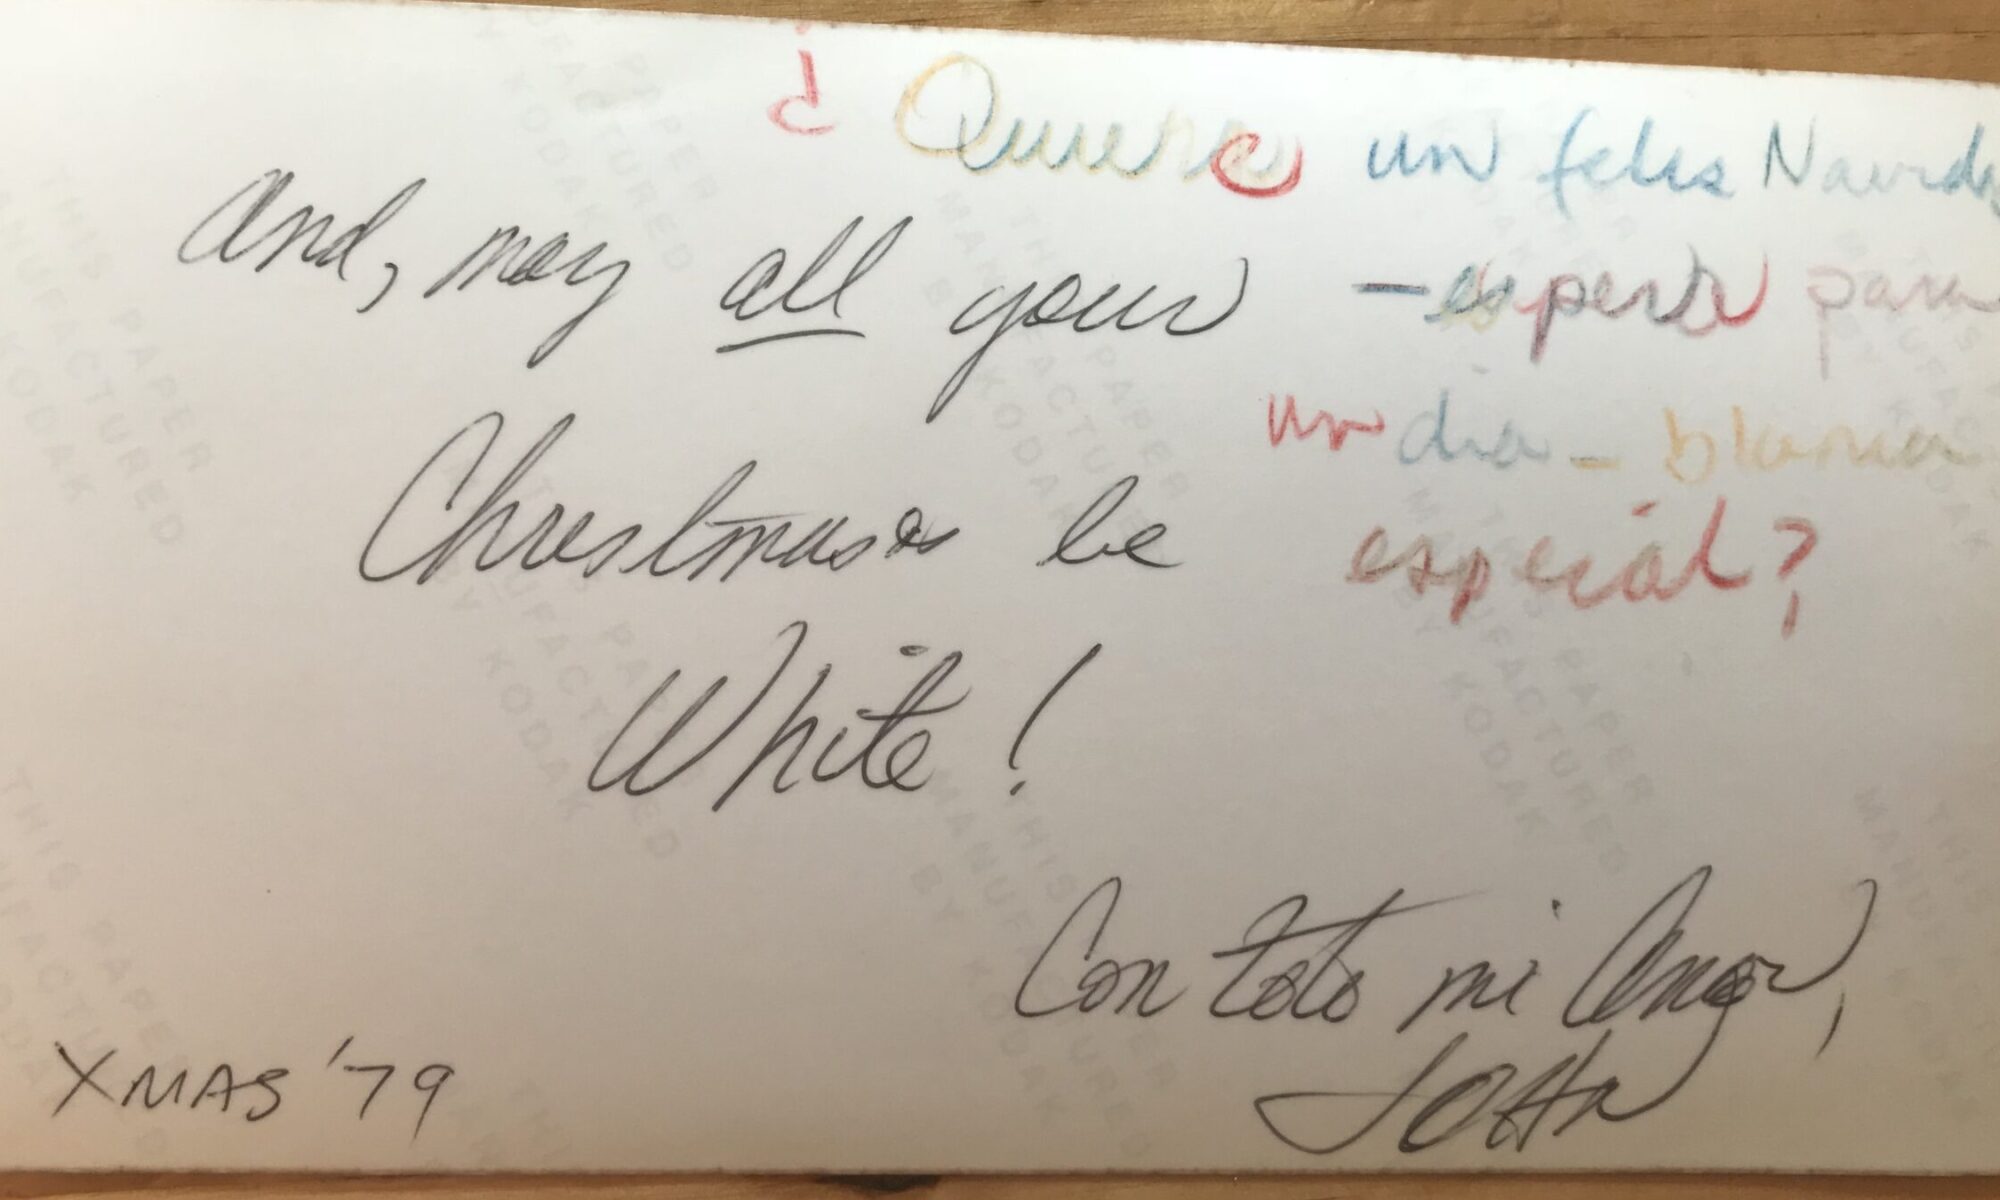 ¿ Quiere un felis Navida
- espera para
un dia - blanca
especial?
And, may all your
Christmases be
White!
Con toto mi Amor,
JOHN
XMAS '79
THIS PAPER
MANUFACTURED
BY KODAK